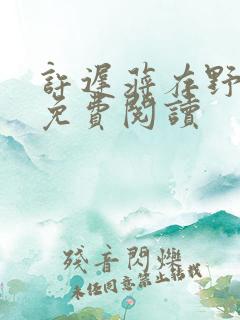 許遲蔣在野
免費閱讀
殘音閃爍
未经同意禁止转载